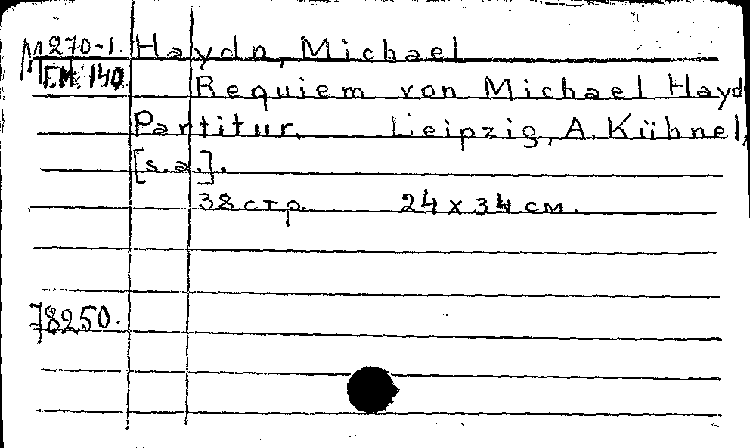 M 270-I. Haydn, Michael
ГМ 140 Requiem von Michael Hayd
Partitur. Leipzig, A. Kühnel,
[s.a.].
38 стр. 24 x 34 см.
78250.